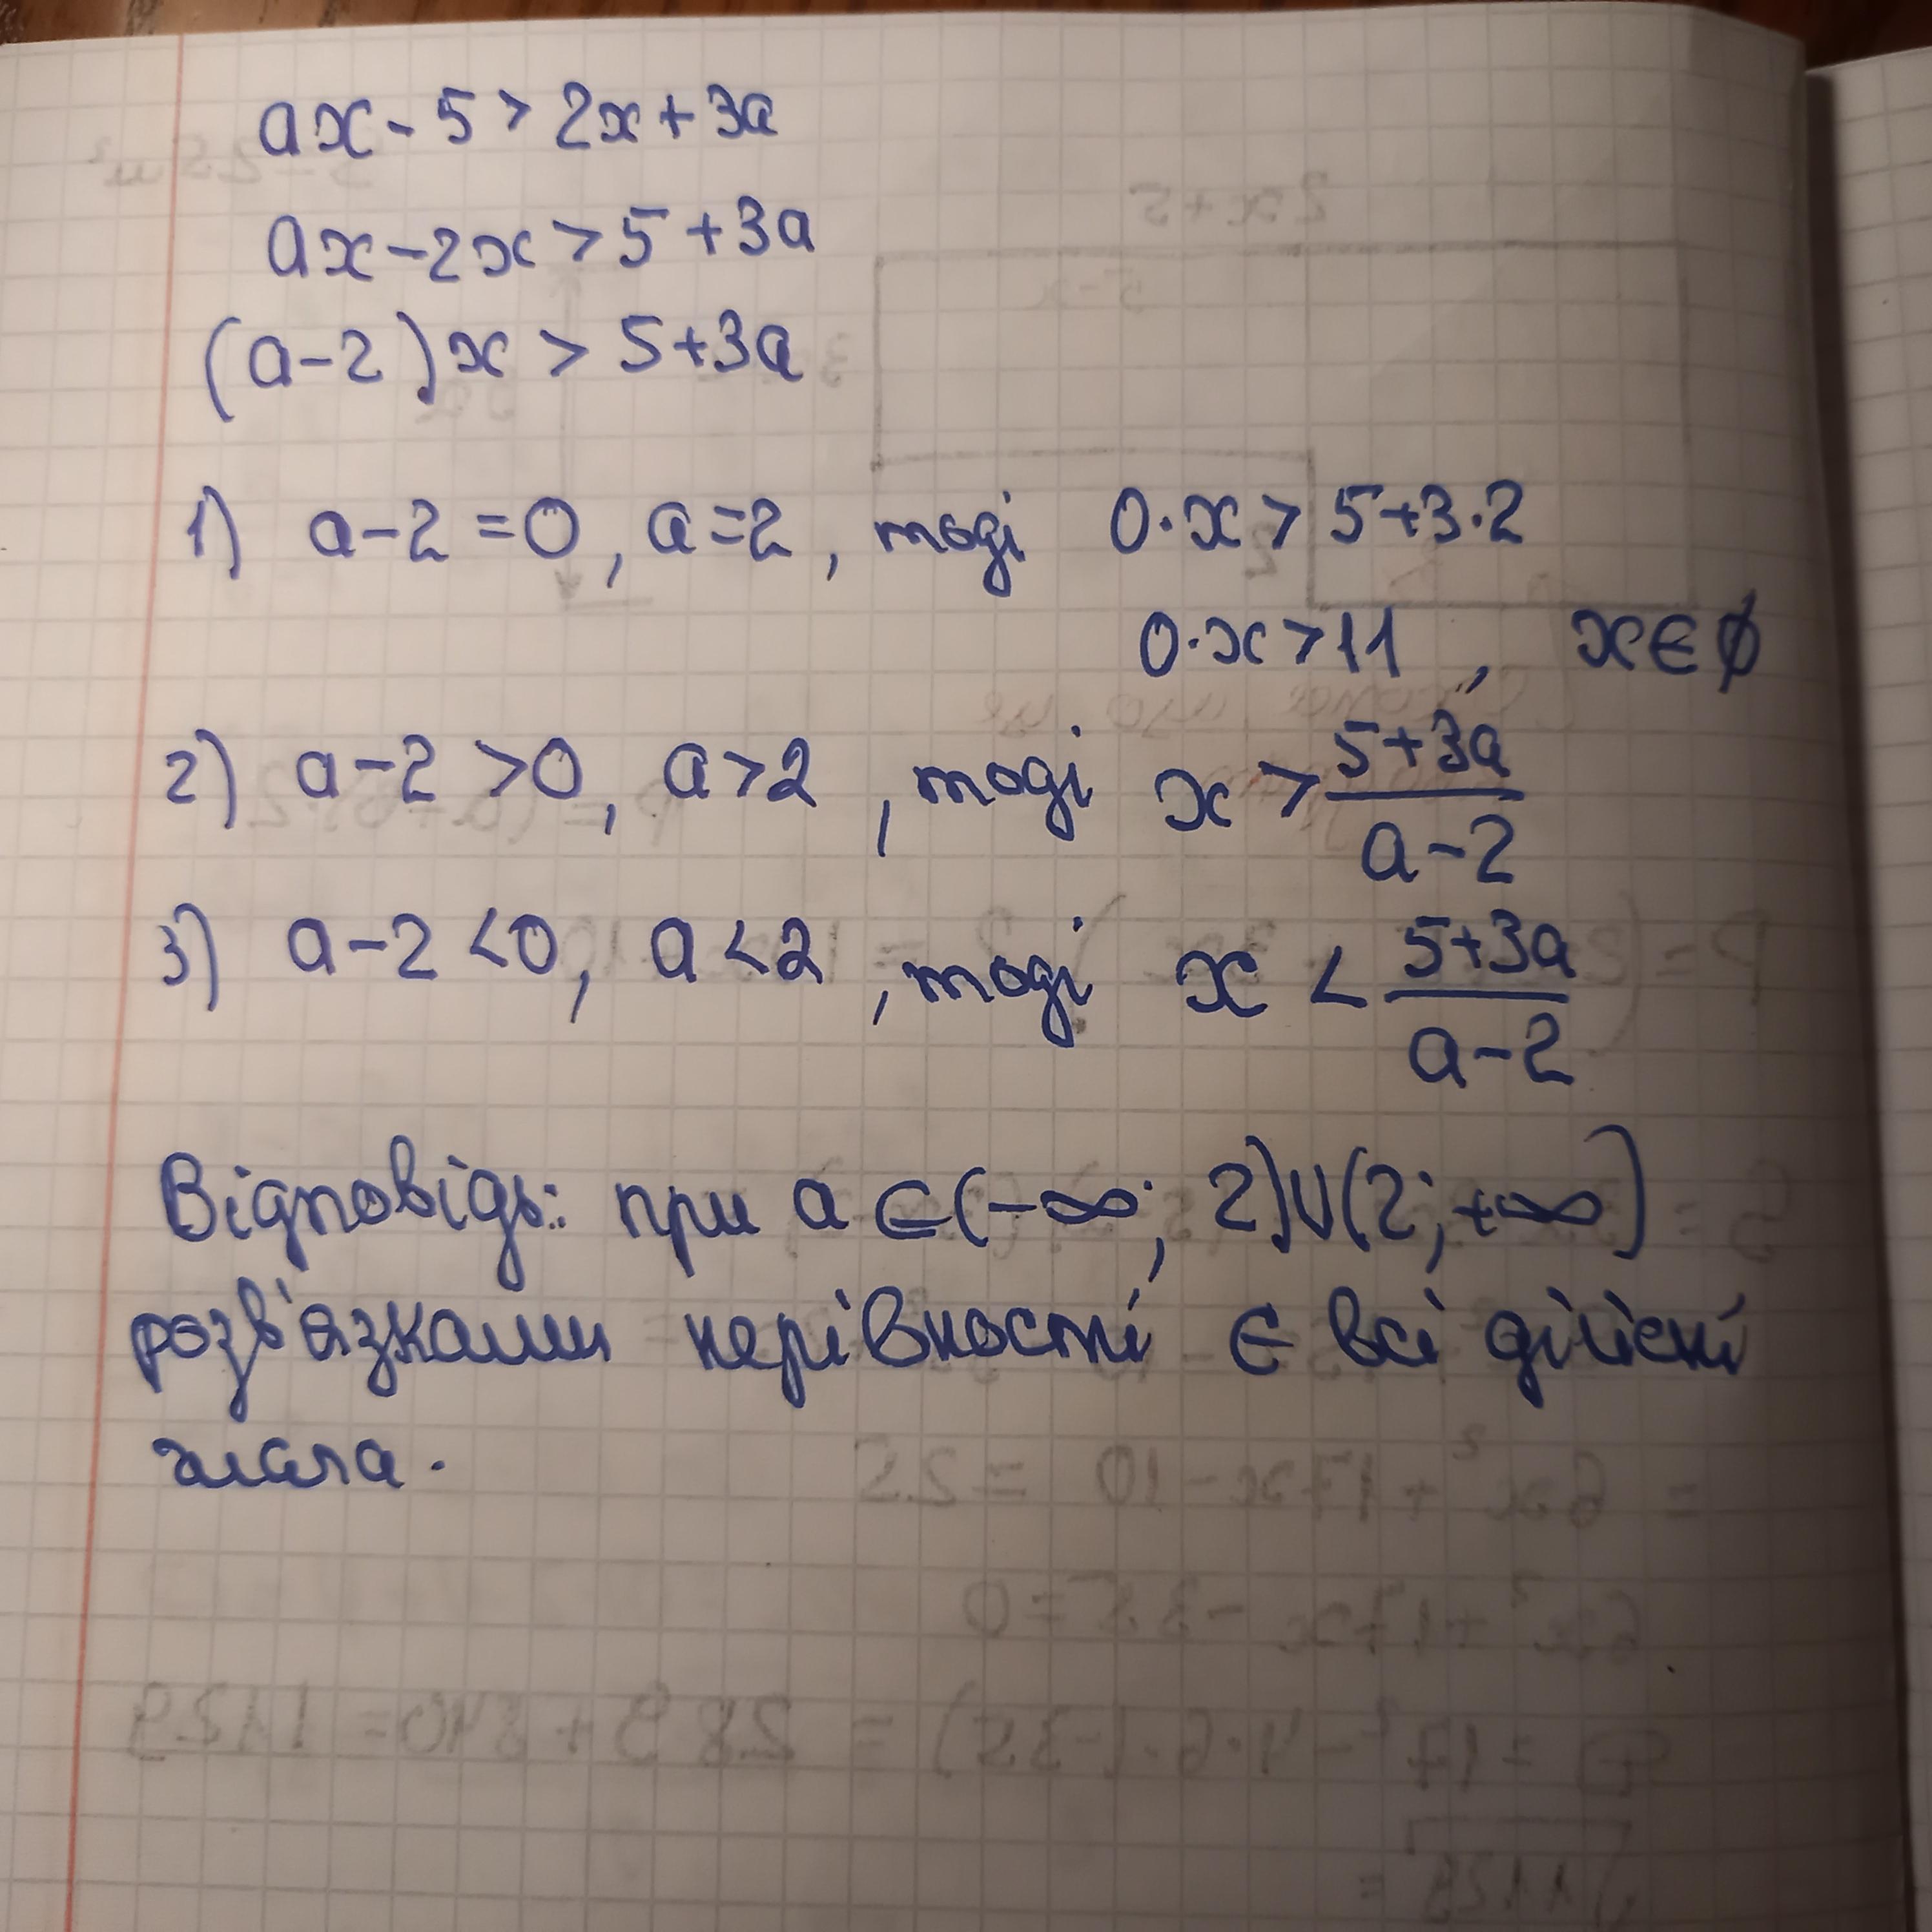 ax - 5 > 2x + 3a
ax - 2x > 5 + 3a
(a - 2)x > 5 + 3a
1) a - 2 = 0, a = 2, тоді 0·x > 5 + 3·2
0·x > 11, x ∈ ∅
2) a - 2 > 0, a > 2, тоді x > (5 + 3a)/(a - 2)
3) a - 2 < 0, a < 2, тоді x < (5 + 3a)/(a - 2)
Відповідь: при a ∈ (-∞; 2) ∪ (2; +∞)
розв'язками нерівності є всі дійсні
числа.